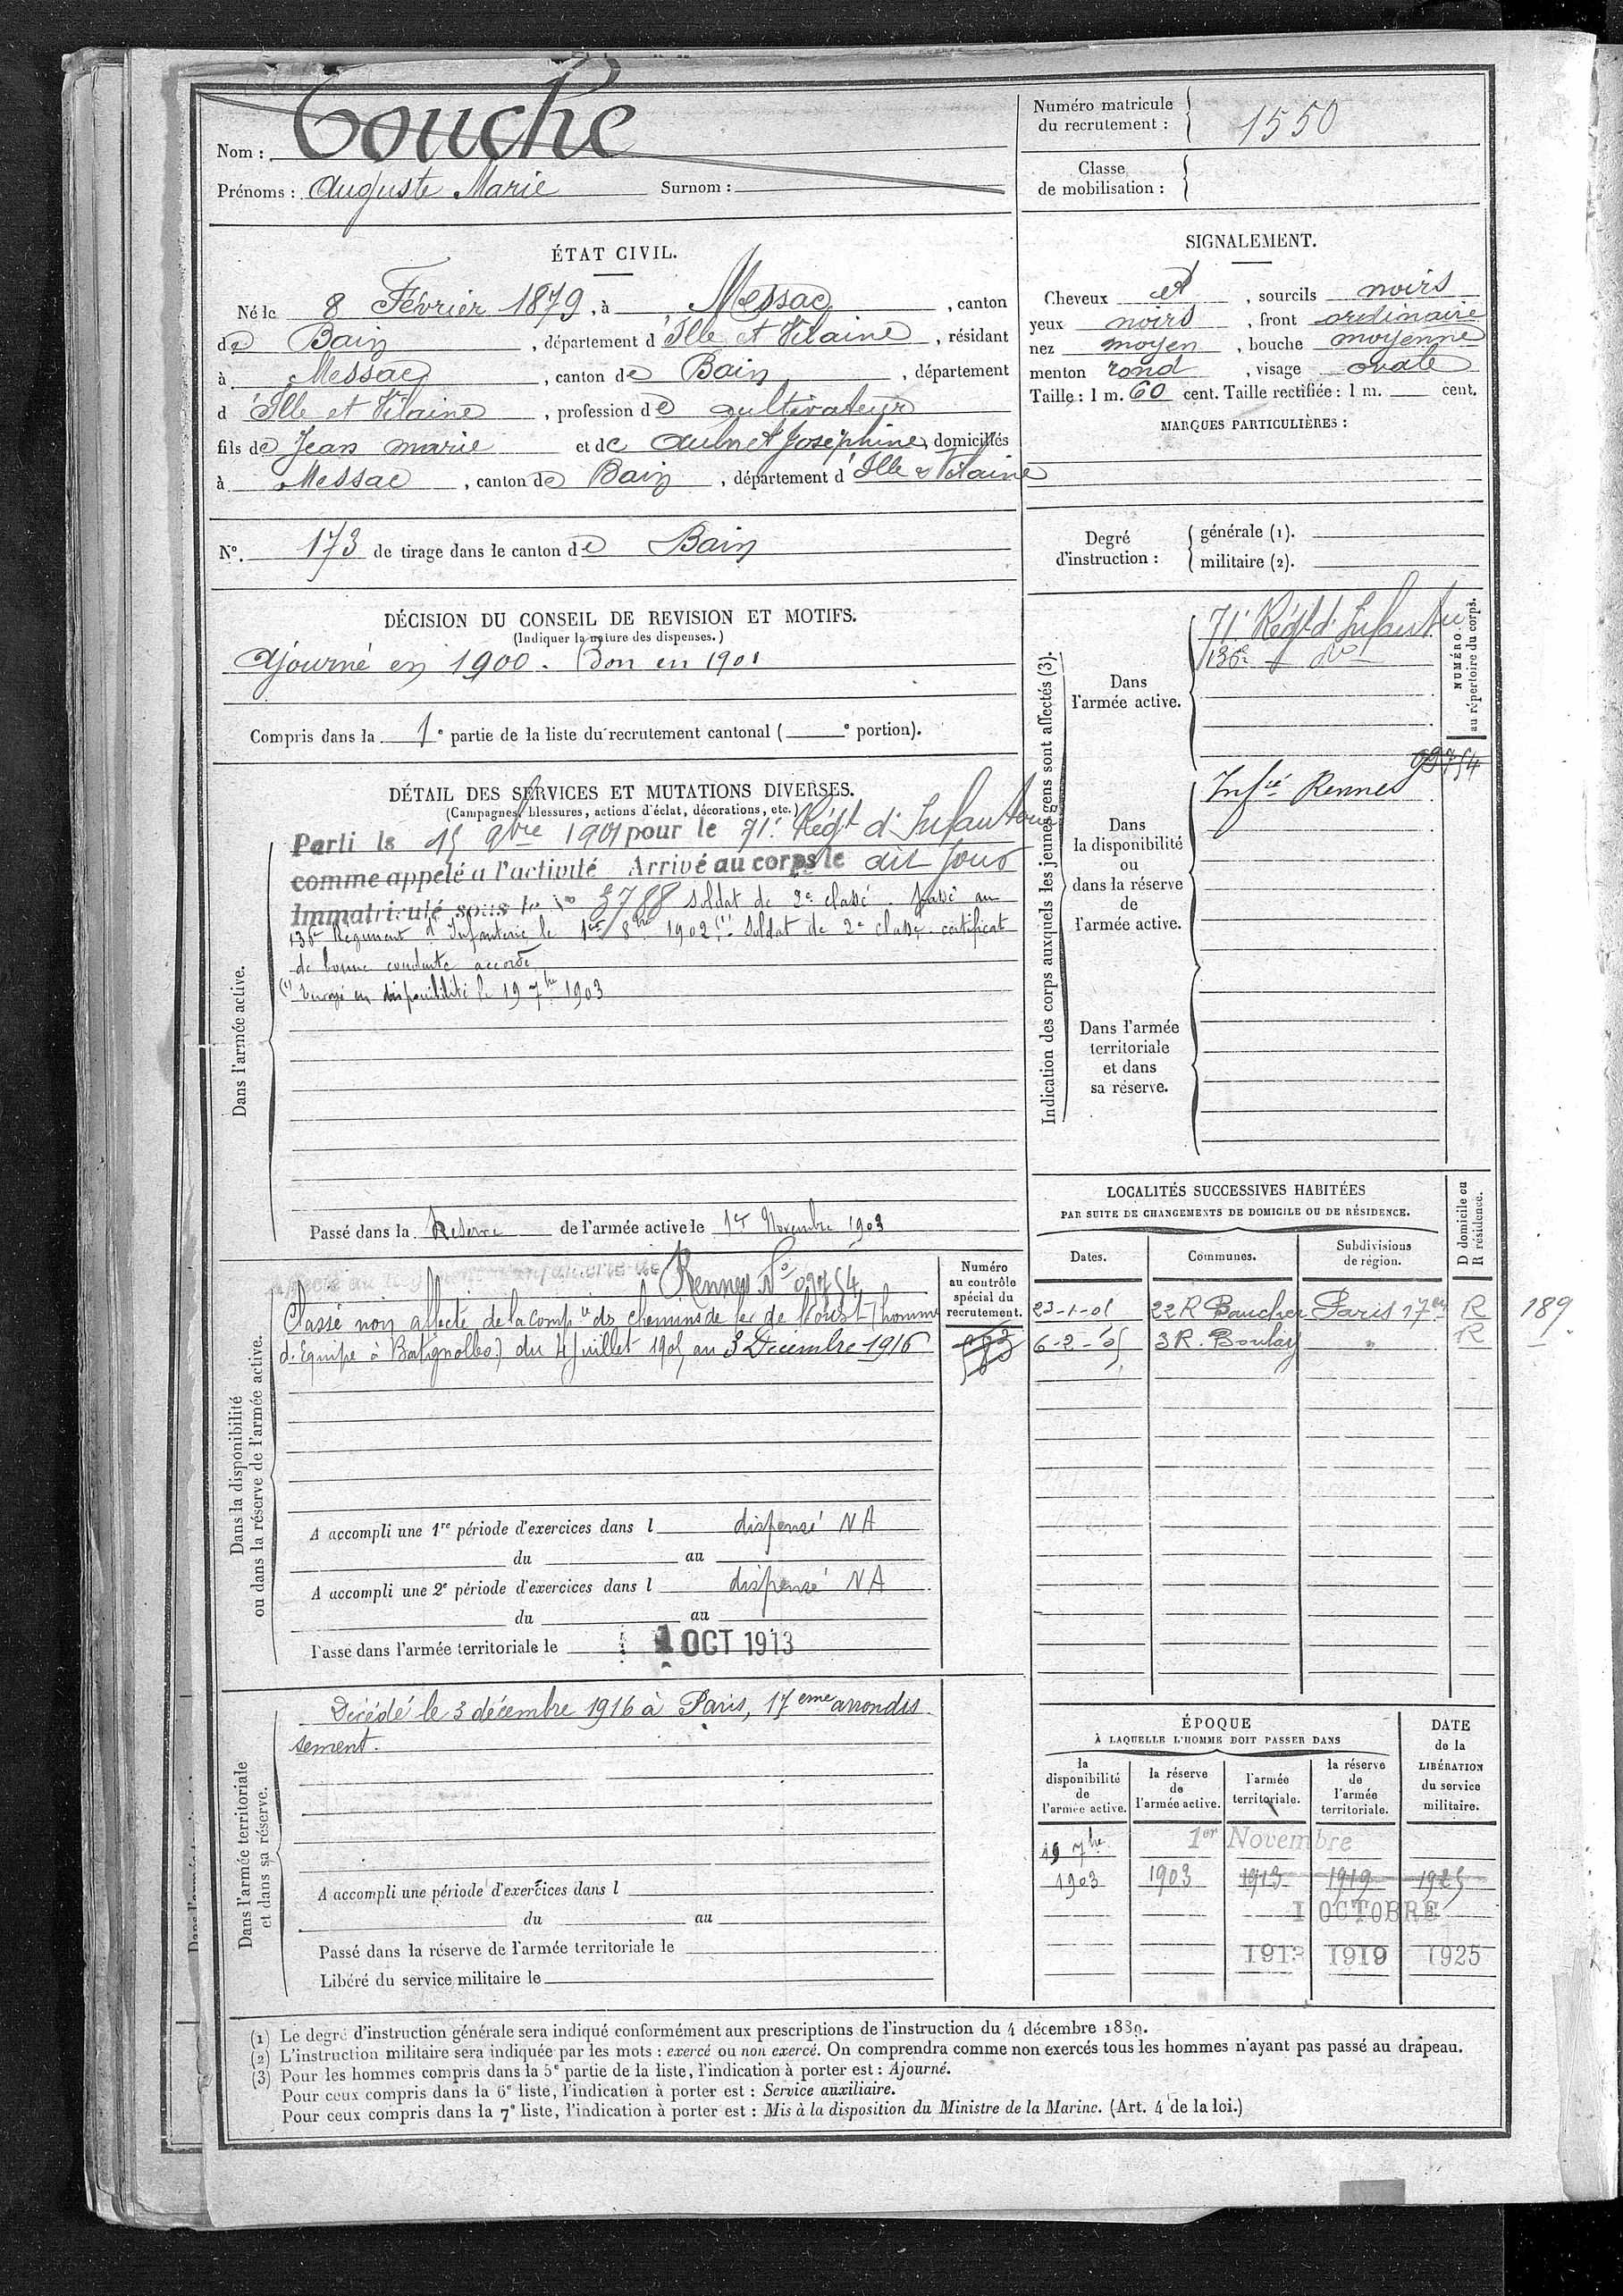 Nom : Touche
Prénoms : Auguste Marie Surnom :
Numéro matricule
du recrutement : 1550
Classe
de mobilisation :
ÉTAT CIVIL.
Né le 8 Février 1879, à Messac, canton
de Bain, département d'Ille et Vilaine, résidant
à Messac, canton de Bain, département
d'Ille et Vilaine, profession de cultivateur
fils de Jean marie et de Aulnet Joséphine, domiciliés
à Messac, canton de Bain, département d'Ille & Vilaine
SIGNALEMENT.
Cheveux et, sourcils noirs
yeux noirs, front ordinaire
nez moyen, bouche moyenne
menton rond, visage ovale
Taille : 1 m. 60 cent. Taille rectifiée : 1 m. cent.
MARQUES PARTICULIÈRES :
N°. 173 de tirage dans le canton de Bain
Degré
d'instruction :
générale (1).
militaire (2).
DÉCISION DU CONSEIL DE REVISION ET MOTIFS.
(Indiquer la nature des dispenses.)
Ajourné en 1900. Bon en 1901
Compris dans la 1e partie de la liste du recrutement cantonal ( e portion).
DÉTAIL DES SERVICES ET MUTATIONS DIVERSES.
(Campagnes, blessures, actions d'éclat, décorations, etc.)
Dans l'armée active.
Parti le 15 9bre 1901 pour le 71e Régt d'Infanterie
comme appelé à l'activité Arrivé au corps le dit jour
Immatriculé sous le no 3788 soldat de 2e classe. Passé au
136e Régiment d'Infanterie le 1er 8bre 1902 (1) Soldat de 2e classe. certificat
de bonne conduite accordé
(1) Envoyé en disponibilité le 19 7bre 1903
Passé dans la Réserve de l'armée active le 1er Novembre 1903
Indication des corps auxquels les jeunes gens sont affectés (3).
NUMÉRO
au répertoire du corps.
Dans
l'armée active.
71e Régt d'Infanterie
136e do
Dans
la disponibilité
ou
dans la réserve
de
l'armée active.
Infie Rennes 09754
Dans l'armée
territoriale
et dans
sa réserve.
Dans la disponibilité
ou dans la réserve de l'armée active.
Rennes No 09754
Classé non affecté de la Compie des chemins de fer de l'Ouest (homme
d'Equipe à Batignolles) du 4 Juillet 1905 au 3 Décembre 1916
Numéro
au contrôle
spécial du
recrutement.
A accompli une 1re période d'exercices dans l dispensé NA
du au
A accompli une 2e période d'exercices dans l dispensé NA
du au
Passé dans l'armée territoriale le 1 OCT 1913
LOCALITÉS SUCCESSIVES HABITÉES
PAR SUITE DE CHANGEMENTS DE DOMICILE OU DE RÉSIDENCE.
D domicile ou
R résidence.
Dates. Communes. Subdivisions
de région.
23-1-05 22 R Paris 17e R 189
6-2-05 3 R. Boulay " R
Dans l'armée territoriale
et dans sa réserve.
Décédé le 3 décembre 1916 à Paris, 17eme arrondis
sement.
A accompli une période d'exercices dans l
du au
Passé dans la réserve de l'armée territoriale le
Libéré du service militaire le
ÉPOQUE
À LAQUELLE L'HOMME DOIT PASSER DANS
DATE
de la
LIBÉRATION
du service
militaire.
la
disponibilité
de
l'armée active.
la réserve
de
l'armée active.
l'armée
territoriale.
la réserve
de
l'armée
territoriale.
19 7bre 1er Novembre
1903 1903 1913 1919 1925
1 OCTOBRE
1913 1919 1925
(1) Le degré d'instruction générale sera indiqué conformément aux prescriptions de l'instruction du 4 décembre 1889.
(2) L'instruction militaire sera indiquée par les mots : exercé ou non exercé. On comprendra comme non exercés tous les hommes n'ayant pas passé au drapeau.
(3) Pour les hommes compris dans la 5e partie de la liste, l'indication à porter est : Ajourné.
Pour ceux compris dans la 6e liste, l'indication à porter est : Service auxiliaire.
Pour ceux compris dans la 7e liste, l'indication à porter est : Mis à la disposition du Ministre de la Marine. (Art. 4 de la loi.)